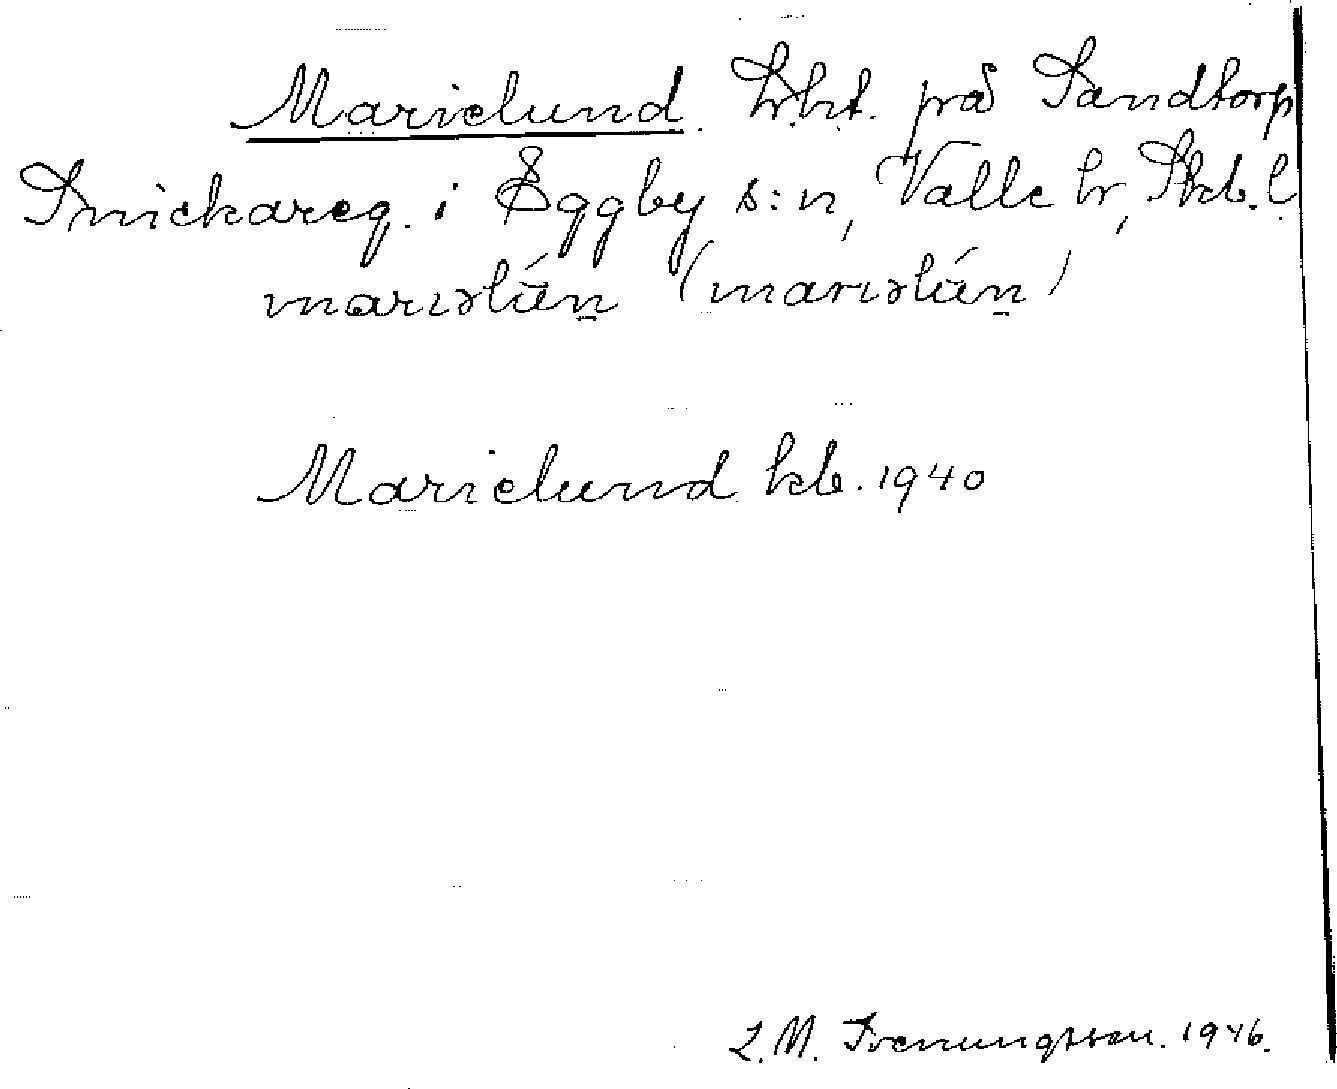 Marielund. Lht. på Sandtorp
Snickareg. i Eggby s:n, Valle hr, Skb. l.
mariəlún̠ (mariəlún̠)
Marielund kb. 1940
L. M. Svenungsson. 1946.